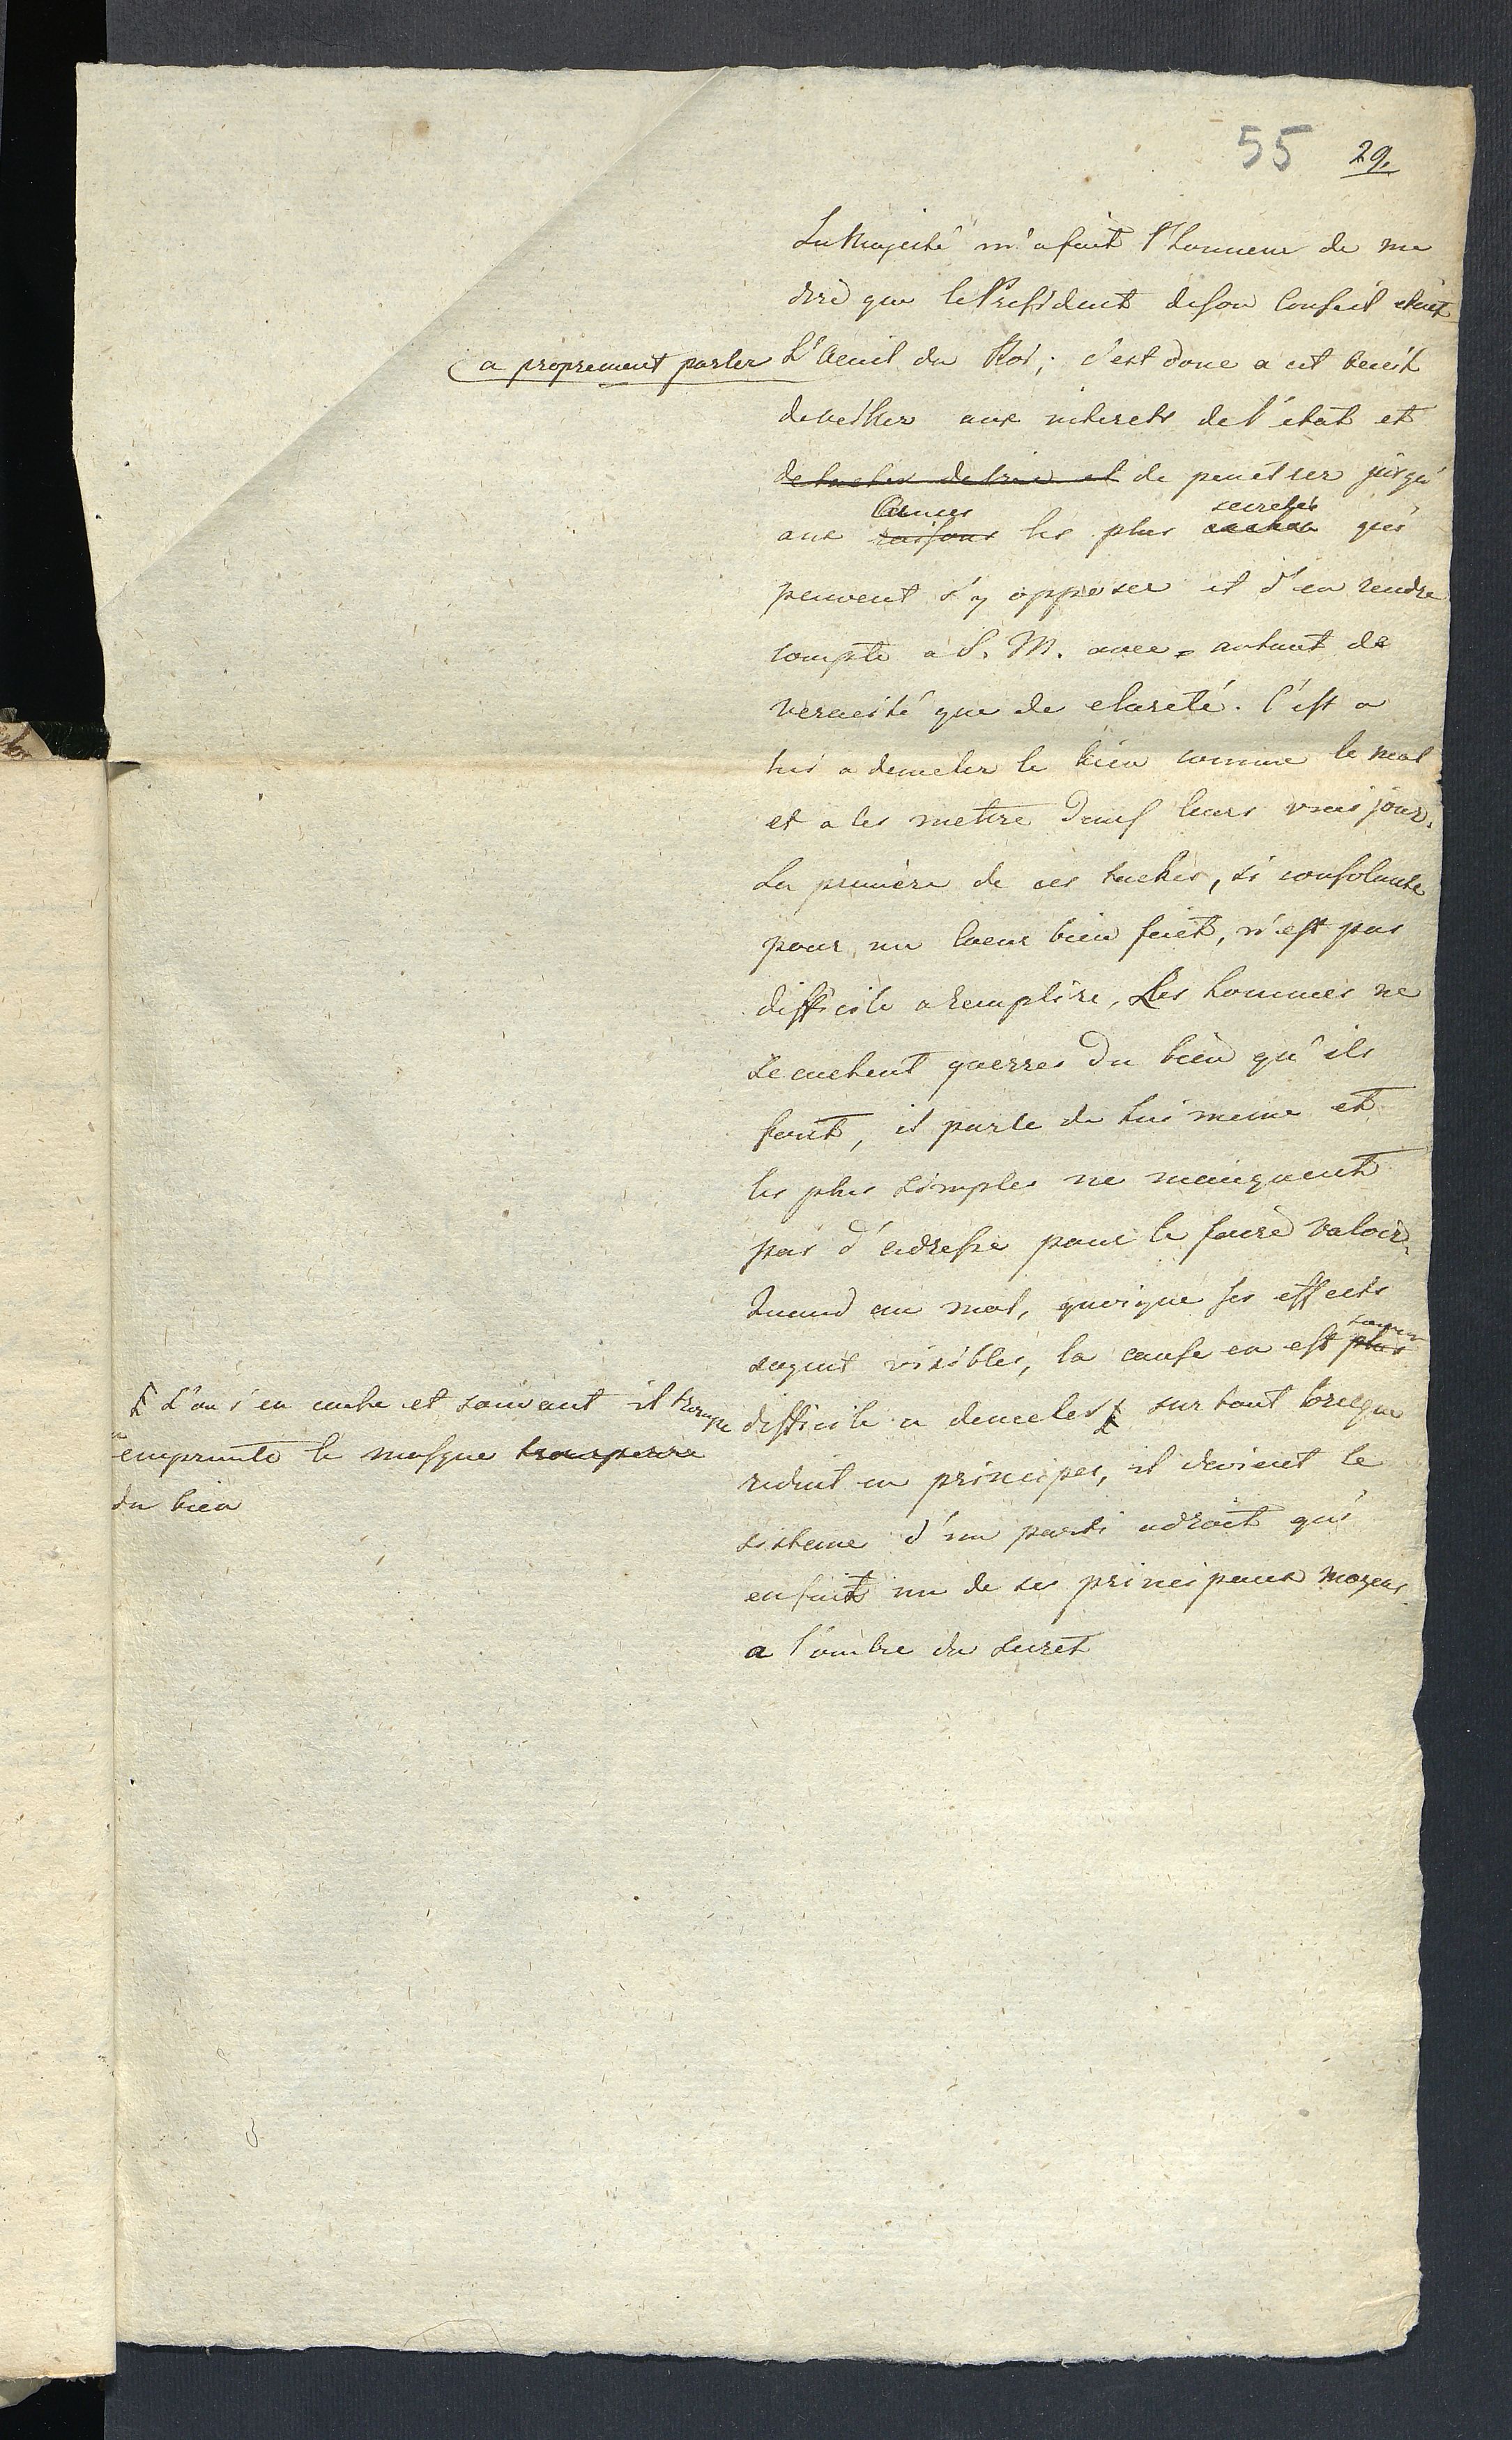 55 29.
Sa Majesté m'a fait l'honneur de me
dire que le President de son Conseil etait
(a proprement parler L'Oeuil du Roi; c'est donc a cet Oeuil
de veiller aux interets de l'etat et
de penetrer jusqu'
Causes secretes
aux raisons les plus cachées qui
peuvent s'y opposer et d'en rendre
compte a S. M. avec autant de
veracité que de clareté. C'est a
lui a demeler le bien comme le mal
et a les mettre dans leurs vrais jour.
La premiere de ces taches, si consolante
pour un coeur bien fait, n'est pas
difficile a remplire, Les hommes ne
se cachent guerres du bien qu'ils
font, il parle de lui meme et
les plus simples ne manquent
pas d'adresse pour le faire valoir,
Quand au mal, quoique ses effects
soyent visibles, la cause en est plus
difficile a demeler surtout lorsque
L'on s'en cache et souvent il trompe
emprunte le masque trompeur
du bien
reduit en principes, il devient le
sisteme d'un parti adroit qui
en fait un de ses principaux moyens
a l'ombre du secret